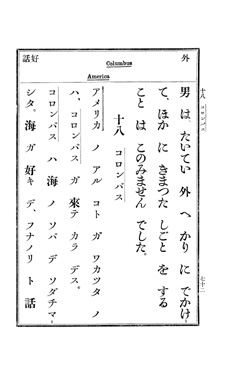 外
好話
Columbus
America
男 は、 たいてい 外 へ かり に でかけ
て、 ほか に きまつた しごと を する
こと は このみません でした。
十八 コロンバス
アメリカ ノ アル コト ガ ワカツタ ノ
ハ、 コロンバス ガ 來テ カラ デス。
コロンバス ハ 海 ノ ソバ デ ソダチマ
シタ。 海 ガ 好キ デ、 フナノリ ト 話
十八 コロンバス
七十二